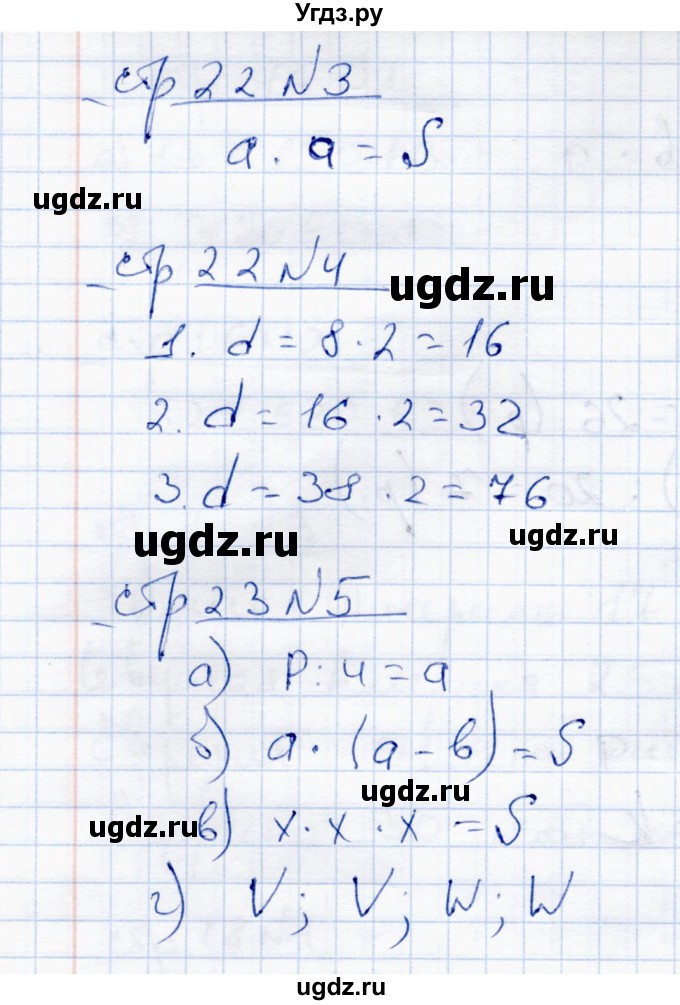 Угдз.ру
стр 22 N3
a · a = S
ugdz.ru
стр 22 N4
ugdz.ru
1. d = 8 · 2 = 16
2. d = 16 · 2 = 32
3. d = 38 · 2 = 76
ugdz.ru
ugdz.ru
стр 23 N5
а) P : 4 = a
б) a · (a - b) = S
ugdz.ru
ugdz.ru
в) x · x · x = S
г) V; V; W; W
ugdz.ru